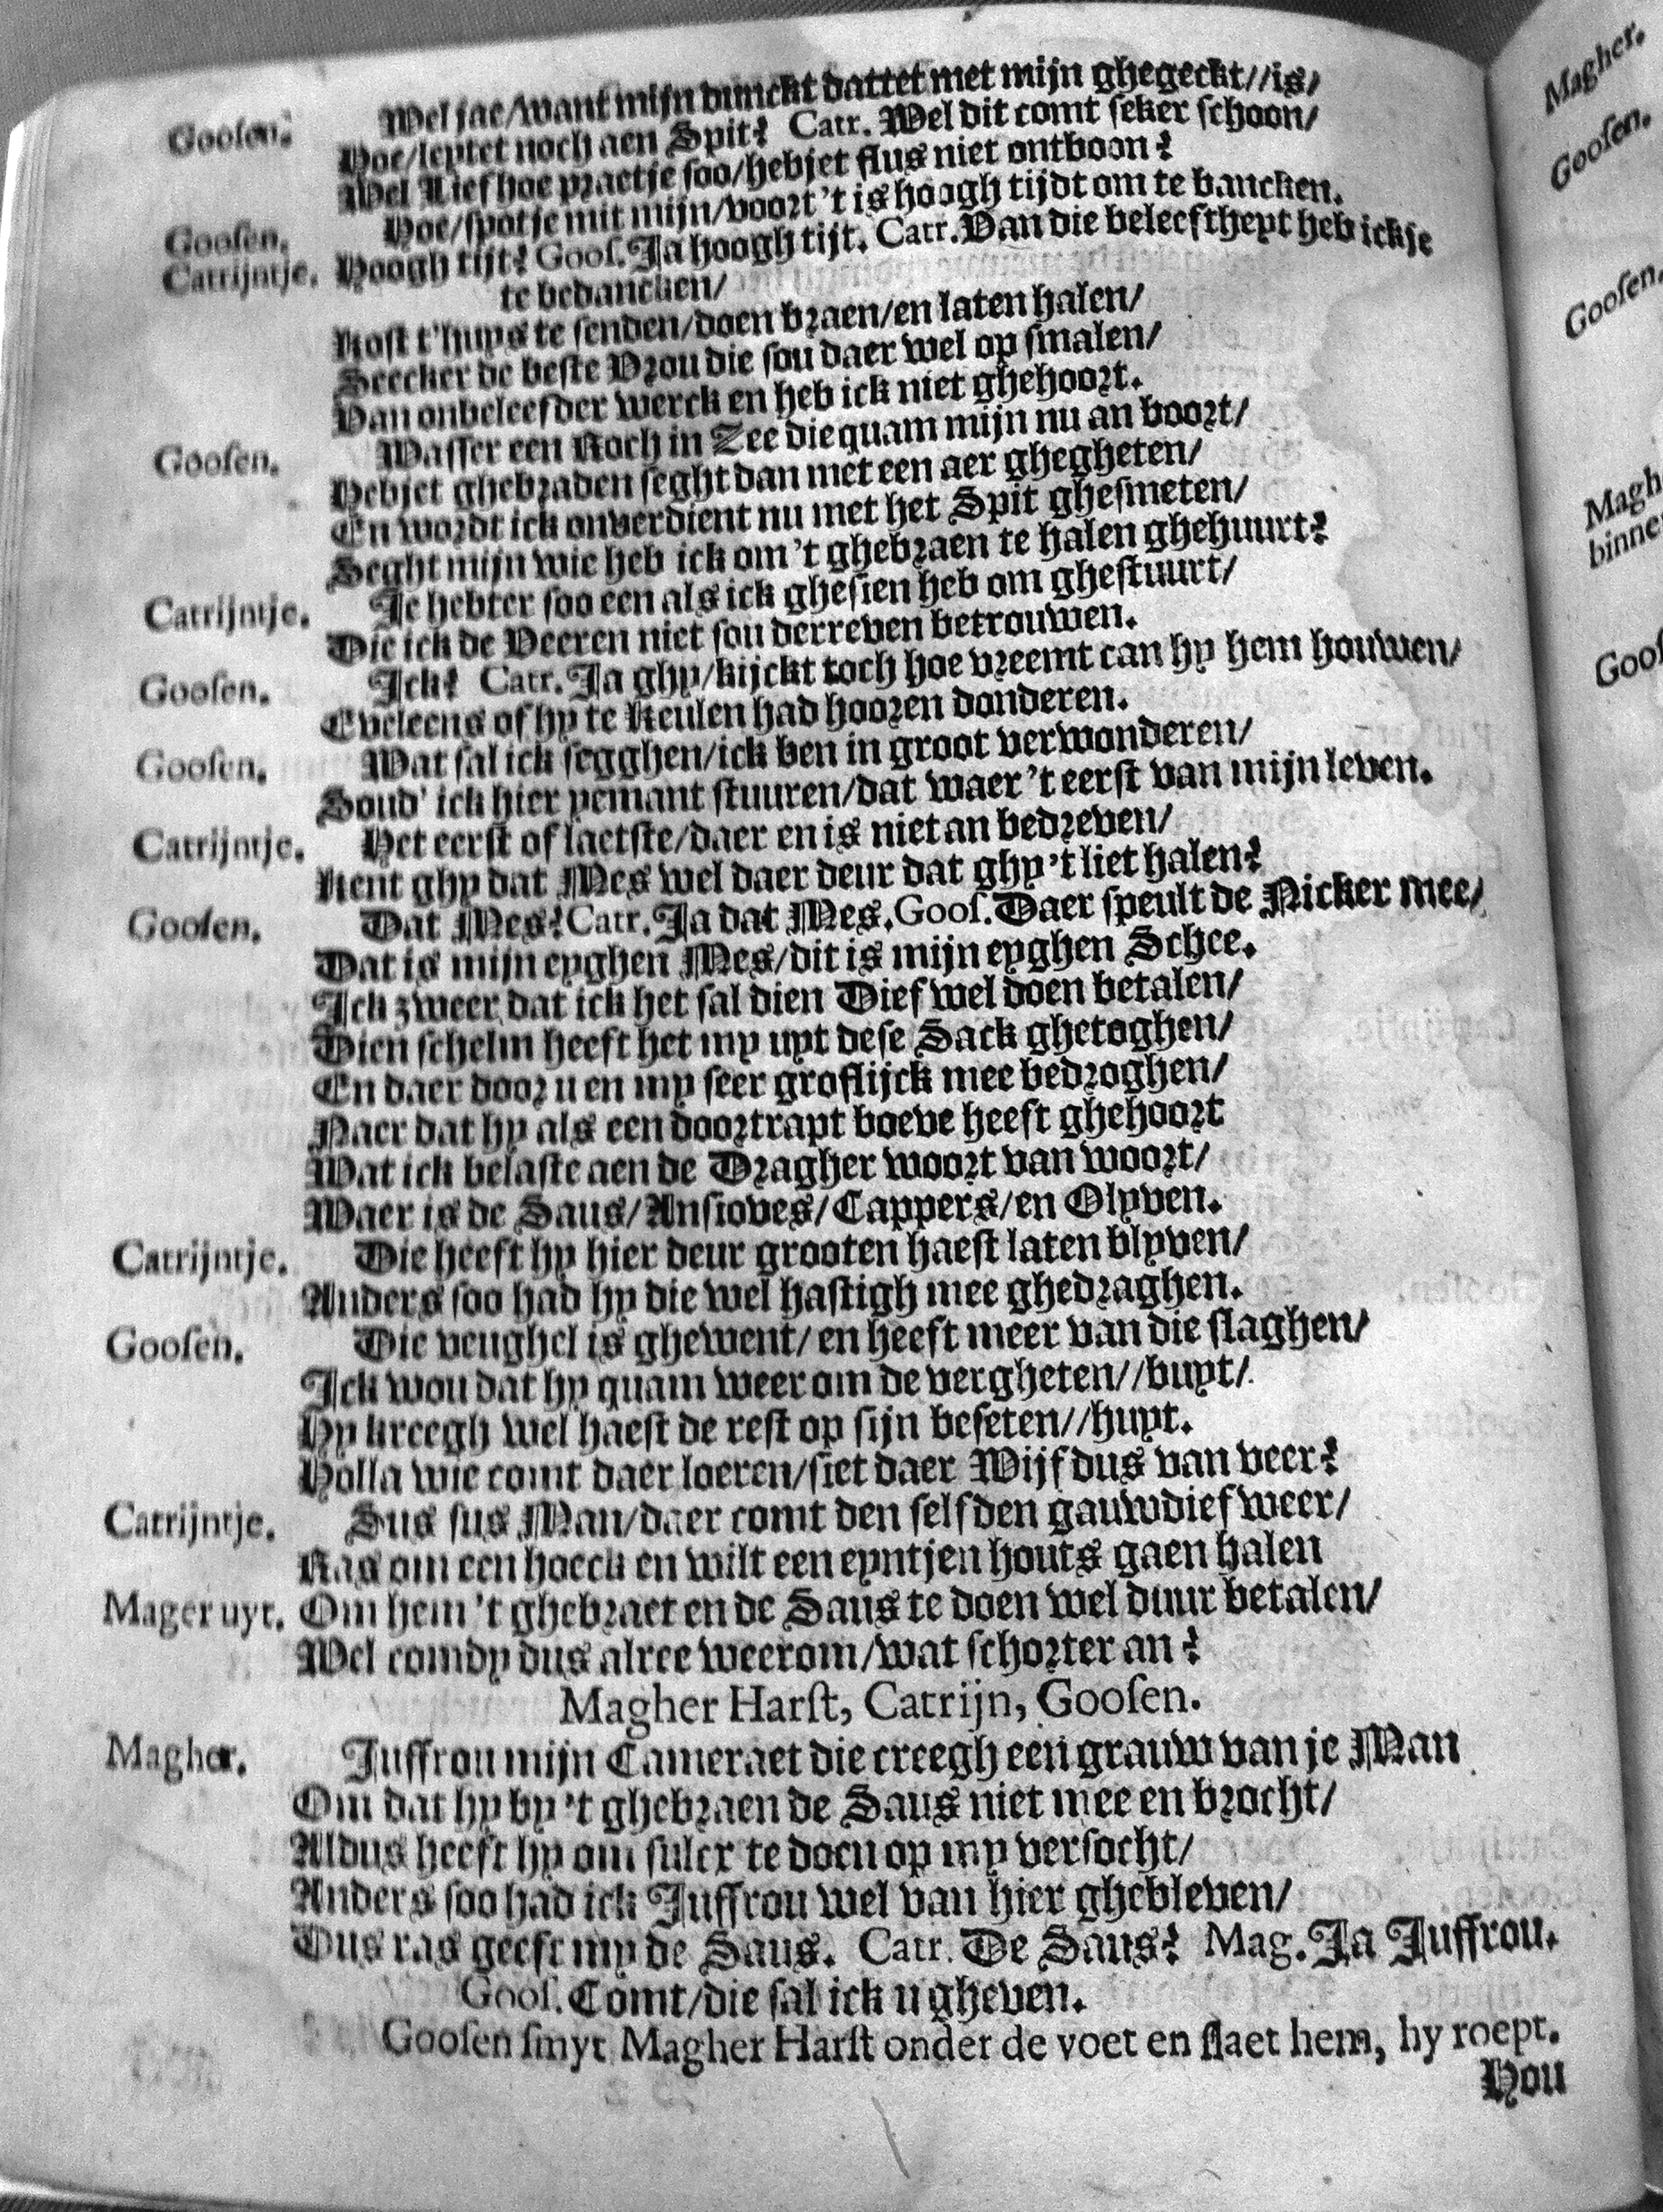 Goosen. Wel jae/want mijn dunckt dattet met mijn ghegeckt//is/
Hoe/leytet noch aen Spit? Catr. Wel dit comt seker schoon/
Wel Lief hoe praetje soo/hebjet flus niet ontboon?
Goosen. Hoe/spotje mit mijn/voort 't is hoogh tijdt om te bancken.
Catrijntje. Hoogh tijt? Goos. Ja hoogh tijt. Catr. Van die beleeftheyt heb ickje
te bedancken/
Kost t'huys te senden/doen braen/en laten halen/
Seecker de beste Vrou die sou daer wel op smalen/
Van onbeleefder werck en heb ick niet ghehoort.
Goosen. Wasser een Koch in Zee die quam mijn nu an boort/
Hebjet ghebraden seght dan met een aer ghegheten/
En wordt ick onverdient nu met het Spit ghesmeten/
Seght mijn wie heb ick om 't ghebraen te halen ghehuurt?
Catrijntje. Je hebter soo een als ick ghesien heb om ghestuurt/
Die ick de Veeren niet sou derreven betrouwen.
Goosen. Ick? Catr. Ja ghy/kijckt toch hoe vreemt can hy hem houwen/
Eveleens of hy te Keulen had hooren donderen.
Goosen. Wat sal ick segghen/ick ben in groot verwonderen/
Soud' ick hier yemant stuuren/dat waer 't eerst van mijn leven.
Catrijntje. Het eerst of laetste/daer en is niet an bedreven/
Kent ghy dat Mes wel daer deur dat ghy 't liet halen?
Goosen. Dat Mes? Catr. Ja dat Mes. Goos. Daer speult de Nicker mee/
Dat is mijn eyghen Mes/dit is mijn eyghen Schee.
Ick zweer dat ick het sal dien Dief wel doen betalen/
Dien schelm heeft het my uyt dese Sack ghetoghen/
En daer door u en my seer groflijck mee bedroghen/
Naer dat hy als een doortrapt boeve heeft ghehoort
Wat ick belaste aen de Dragher woort van woort/
Waer is de Saus/Ansioves/Cappers/en Olyven.
Catrijntje. Die heeft hy hier deur grooten haest laten blyven/
Anders soo had hy die wel hastigh mee ghedraghen.
Goosen. Die veughel is ghewent/en heeft meer van die slaghen/
Ick wou dat hy quam weer om de vergheten//buyt/
Hy kreegh wel haest de rest op sijn beseten//huyt.
Holla wie comt daer loeren/siet daer Wijf dus van veer?
Catrijntje. Sus sus Man/daer comt den selfden gauwdief weer/
Ras om een hoeck en wilt een eyntjen houts gaen halen
Mager uyt. Om hem 't ghebraet en de Saus te doen wel duur betalen/
Wel comdy dus alree weerom/wat schorter an?
Magher Harst, Catrijn, Goosen.
Magher. Juffrou mijn Cameraet die creegh een grauw van je Man
Om dat hy by 't ghebraen de Saus niet mee en brocht/
Aldus heeft hy om sulcx te doen op my versocht/
Anders soo had ick Juffrou wel van hier ghebleven/
Dus ras geeft my de Saus. Catr. De Saus? Mag. Ja Juffrou.
Goos. Comt/die sal ick u gheven.
Goosen smyt Magher Harst onder de voet en slaet hem, hy roept.
Hou
Magher.
Goosen.
Goosen.
Magh
binne
Goos